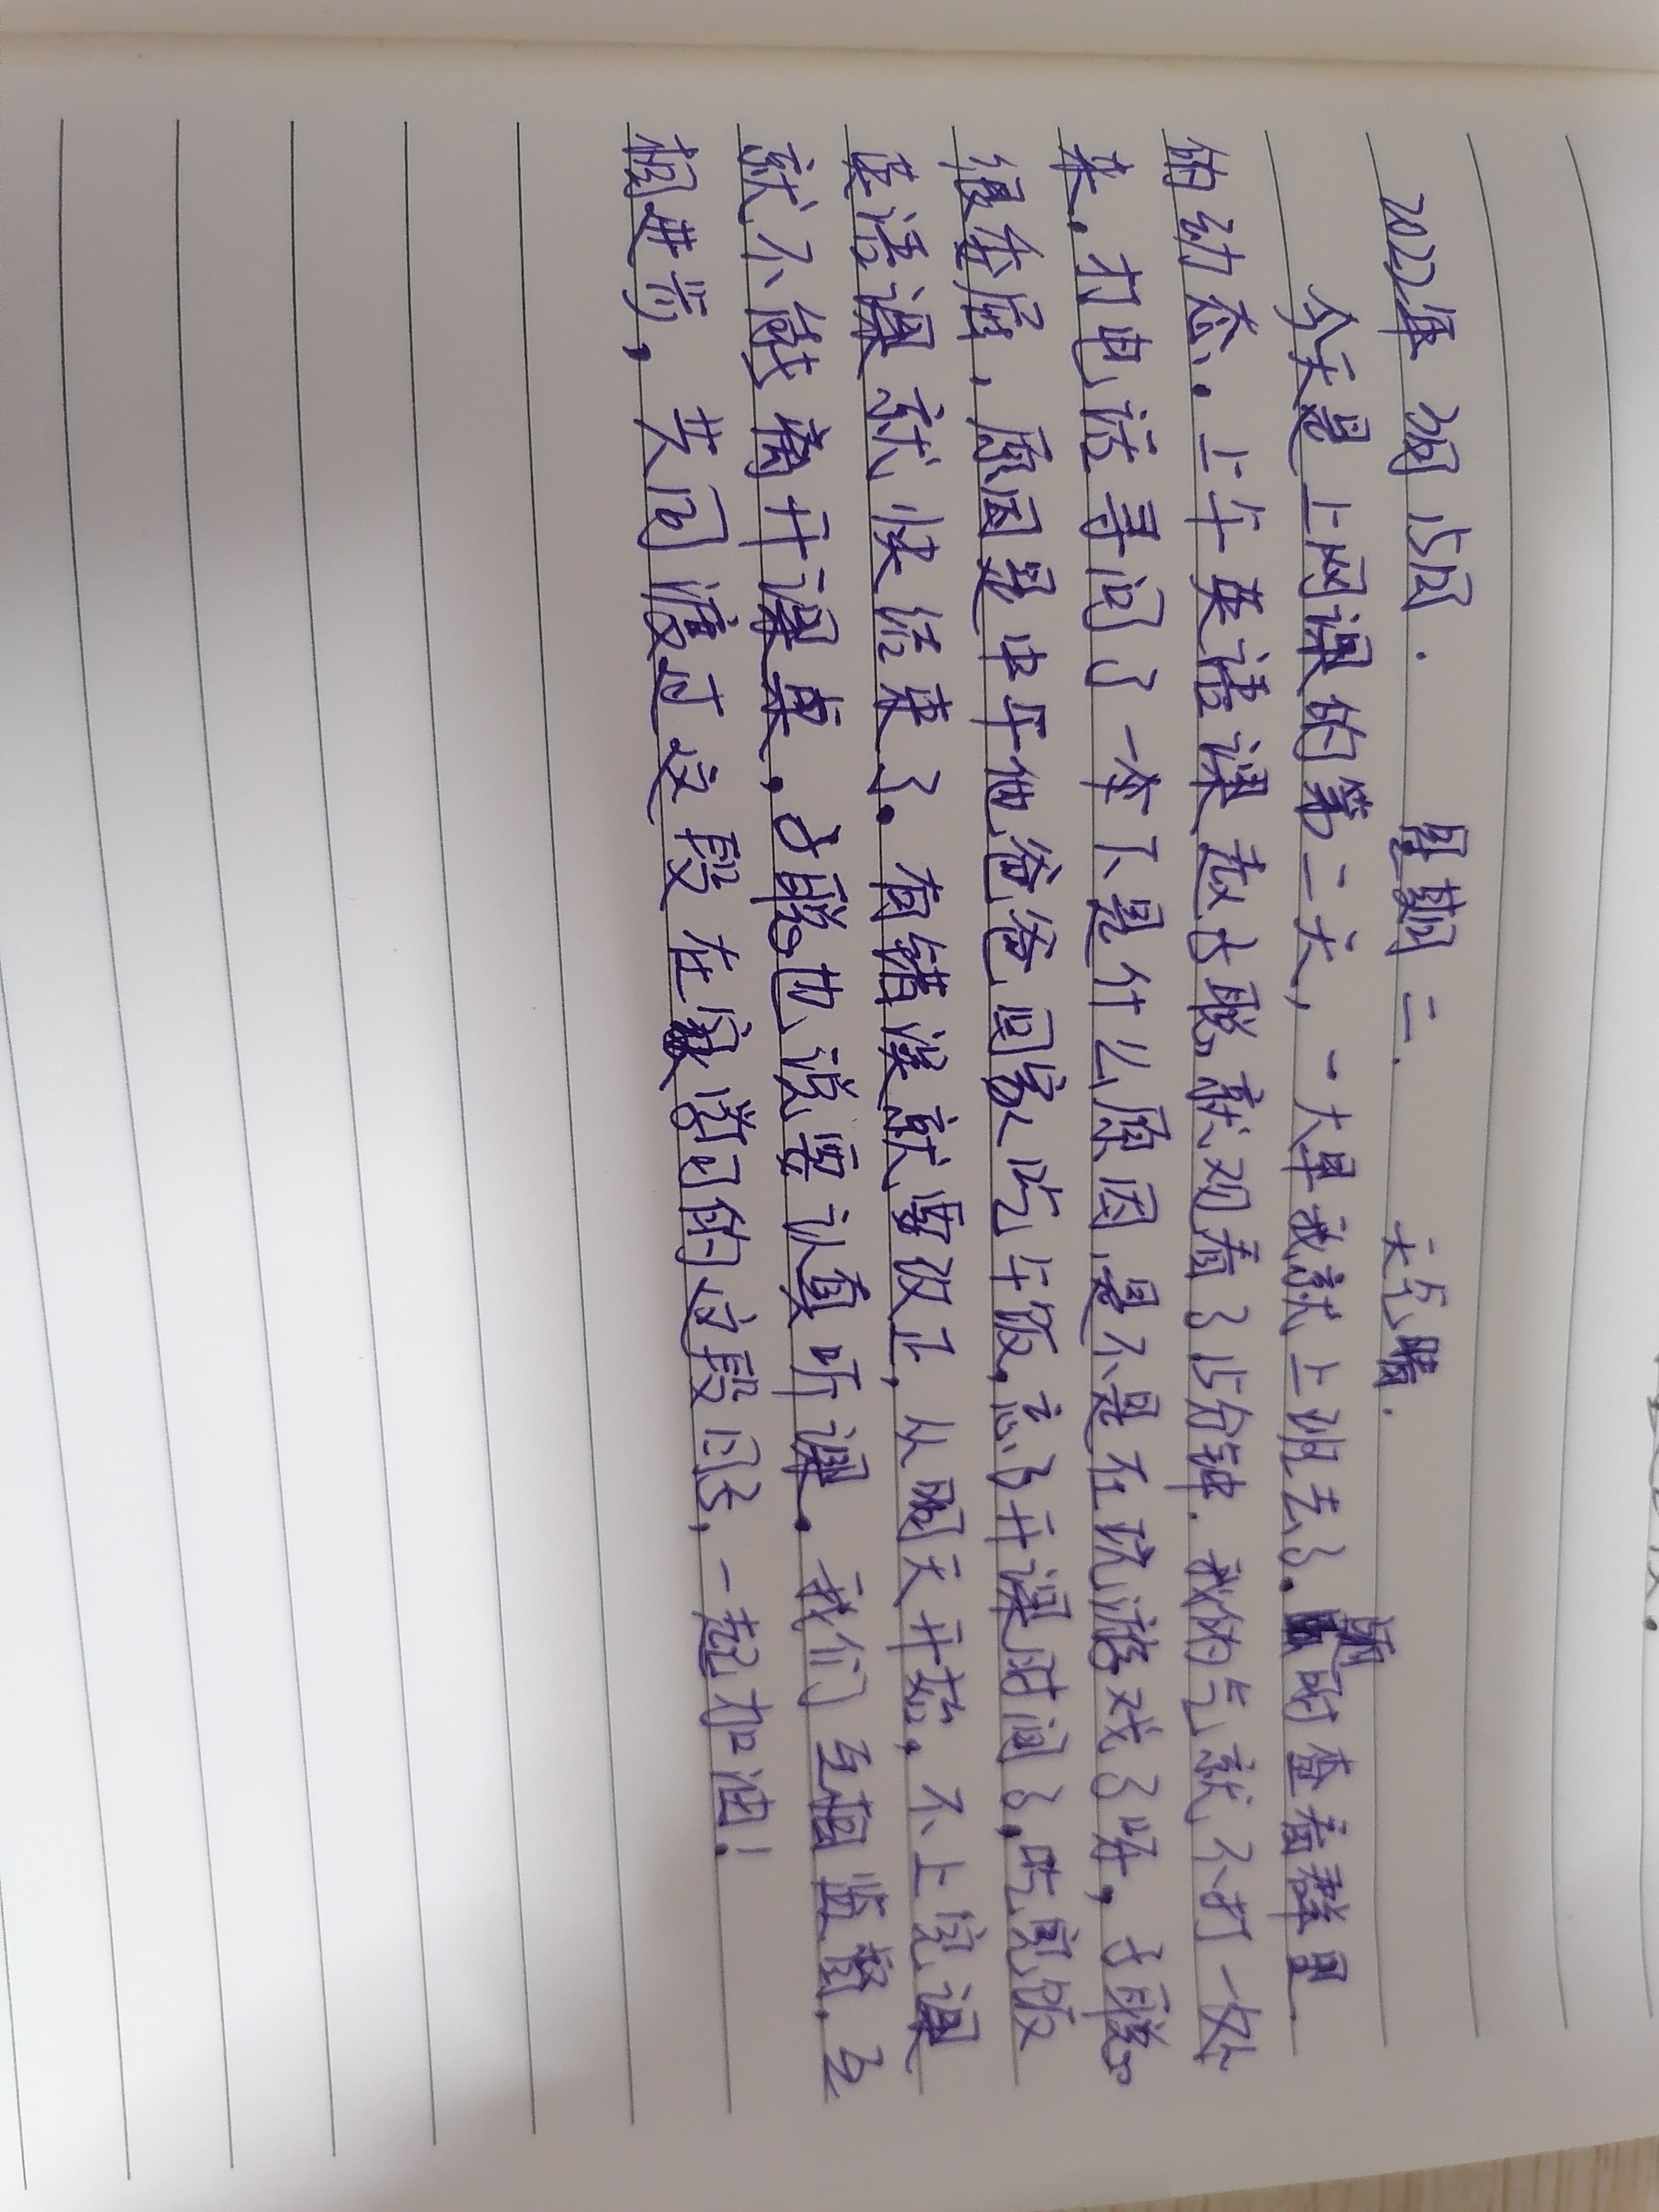 2022年 3月 15日. 星期二. 天气晴.
今天是上网课的第二天，一大早我就上班去了.随时查看群里
的动态.上午英语课赵古聪就观看了15分钟.我的气就不打一处
来.打电话寻问了一夲不是什么原因,是不是在玩游戏了呀,古聪
很委屈,原因是中午他爸爸回家吃午饭,忘了开课时间了,吃完饭
英语课就快结束了.有错误就要改正,从明天开始,不上完课
就不能离开课桌.古聪也说要认真听课.我们互相监督,互
相进步,共同渡过这段在家学习的这段日子,一起加油!